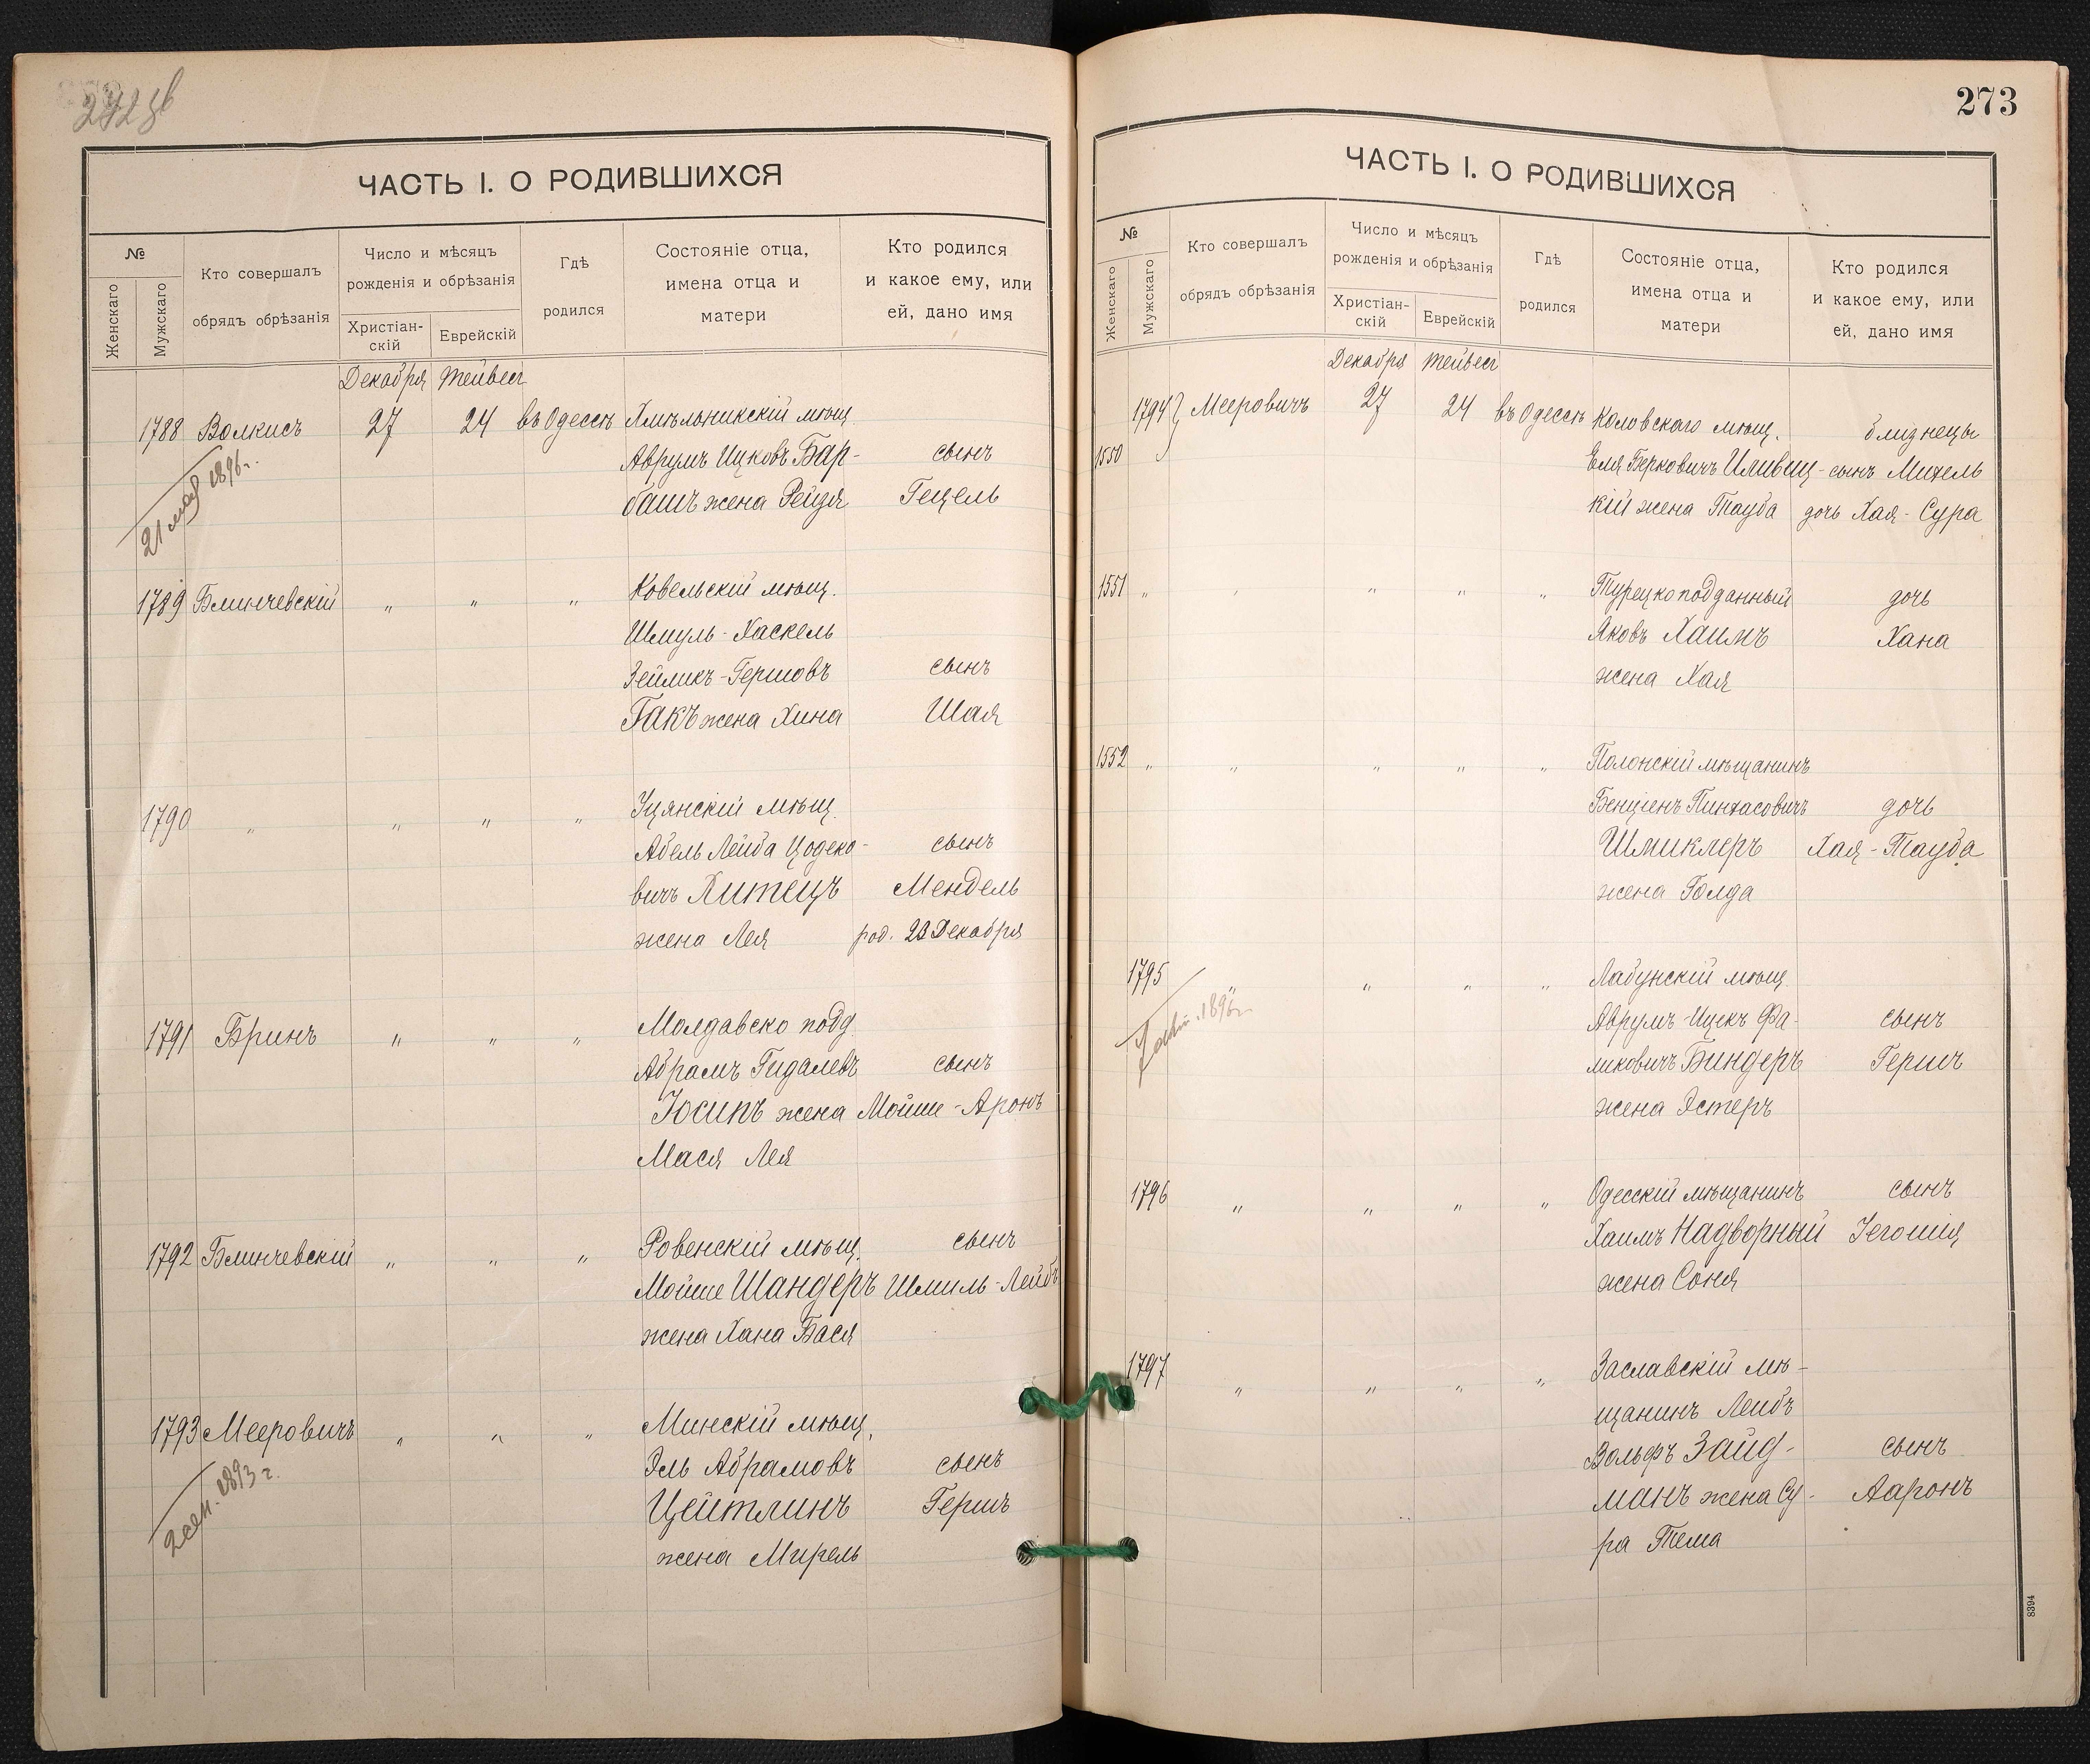 ЧАСТЬ I. О РОДИВШИХСЯ
№
Женскаго
Мужскаго
Кто совершалъ
обрядъ обрѣзанія
Число и мѣсяцъ
рожденія и обрѣзанія
Христіан-
скій
Еврейскій
Гдѣ
родился
Состояніе отца,
имена отца и
матери
Кто родился
и какое ему, или
ей, дано имя
Декабря Тейвест
1788 Волкисъ 27 24 въ Одессѣ Хмѣльникскій мѣщ
Аврумъ Ицковъ Бар- сынъ
башъ жена Рейзя Гецель
21 мая 1896 г.
1789 Блинчевскій „ „ „ Ковельскій мѣщ.
Шмуль-Хаскель
Зейликъ-Гершовъ сынъ
Гакъ жена Хина Шая
1790 „ „ „ „ Уцянскій мѣщ.
Абель Лейба Цодеко- сынъ
вичъ Хитецъ Мендель
жена Лея род. 23 Декабря
1791 Бринъ „ „ „ Молдавско подд
Абрамъ Гидалевъ сынъ
Юсипъ жена Мойше-Аронъ
Мася Лея
1792 Блинчевскій „ „ „ Ровенскій мѣщ. сынъ
Мойше Шандеръ Шмиль-Лейбъ
жена Хана Бася
1793 Мееровичъ „ „ „ Минскій мѣщ.
Эль Абрамовъ сынъ
Цейтлинъ Гершъ
жена Мирель
2 сен. 1893 г.
273
ЧАСТЬ I. О РОДИВШИХСЯ
№
Женскаго
Мужскаго
Кто совершалъ
обрядъ обрѣзанія
Число и мѣсяцъ
рожденія и обрѣзанія
Христіан-
скій
Еврейскій
Гдѣ
родился
Состояніе отца,
имена отца и
матери
Кто родился
и какое ему, или
ей, дано имя
Декабря Тейвест
1794 Мееровичъ 27 24 въ Одессѣ Коловскаго мѣщ. близнецы
1550 Еля Берковичъ Иливиц- сынъ Михель
кій жена Тауба дочь Хая-Сура
1551 „ „ „ „ „ Турецкоподданный дочь
Яковъ Хаимъ Хана
жена Хая
1552 „ „ „ „ „ Полонскій мѣщанинъ
Бенціенъ Пинхасовичъ дочь
Шмиклеръ Хая-Тауба
жена Голда
1795 „ „ „ „ Лабунскій мѣщ.
Аврумъ-Ицекъ Фа- сынъ
ликовичъ Биндеръ Герш
жена Эстеръ
1896 г.
1796 „ „ „ „ Одесскій мѣщанинъ сынъ
Хаимъ Надворный Іегошія
жена Соня
1797 „ „ „ „ Заславскій мѣ-
щанинъ Лейбъ
Вольфъ Зайд- сынъ
манъ жена Су- Ааронъ
ра Тема
8394